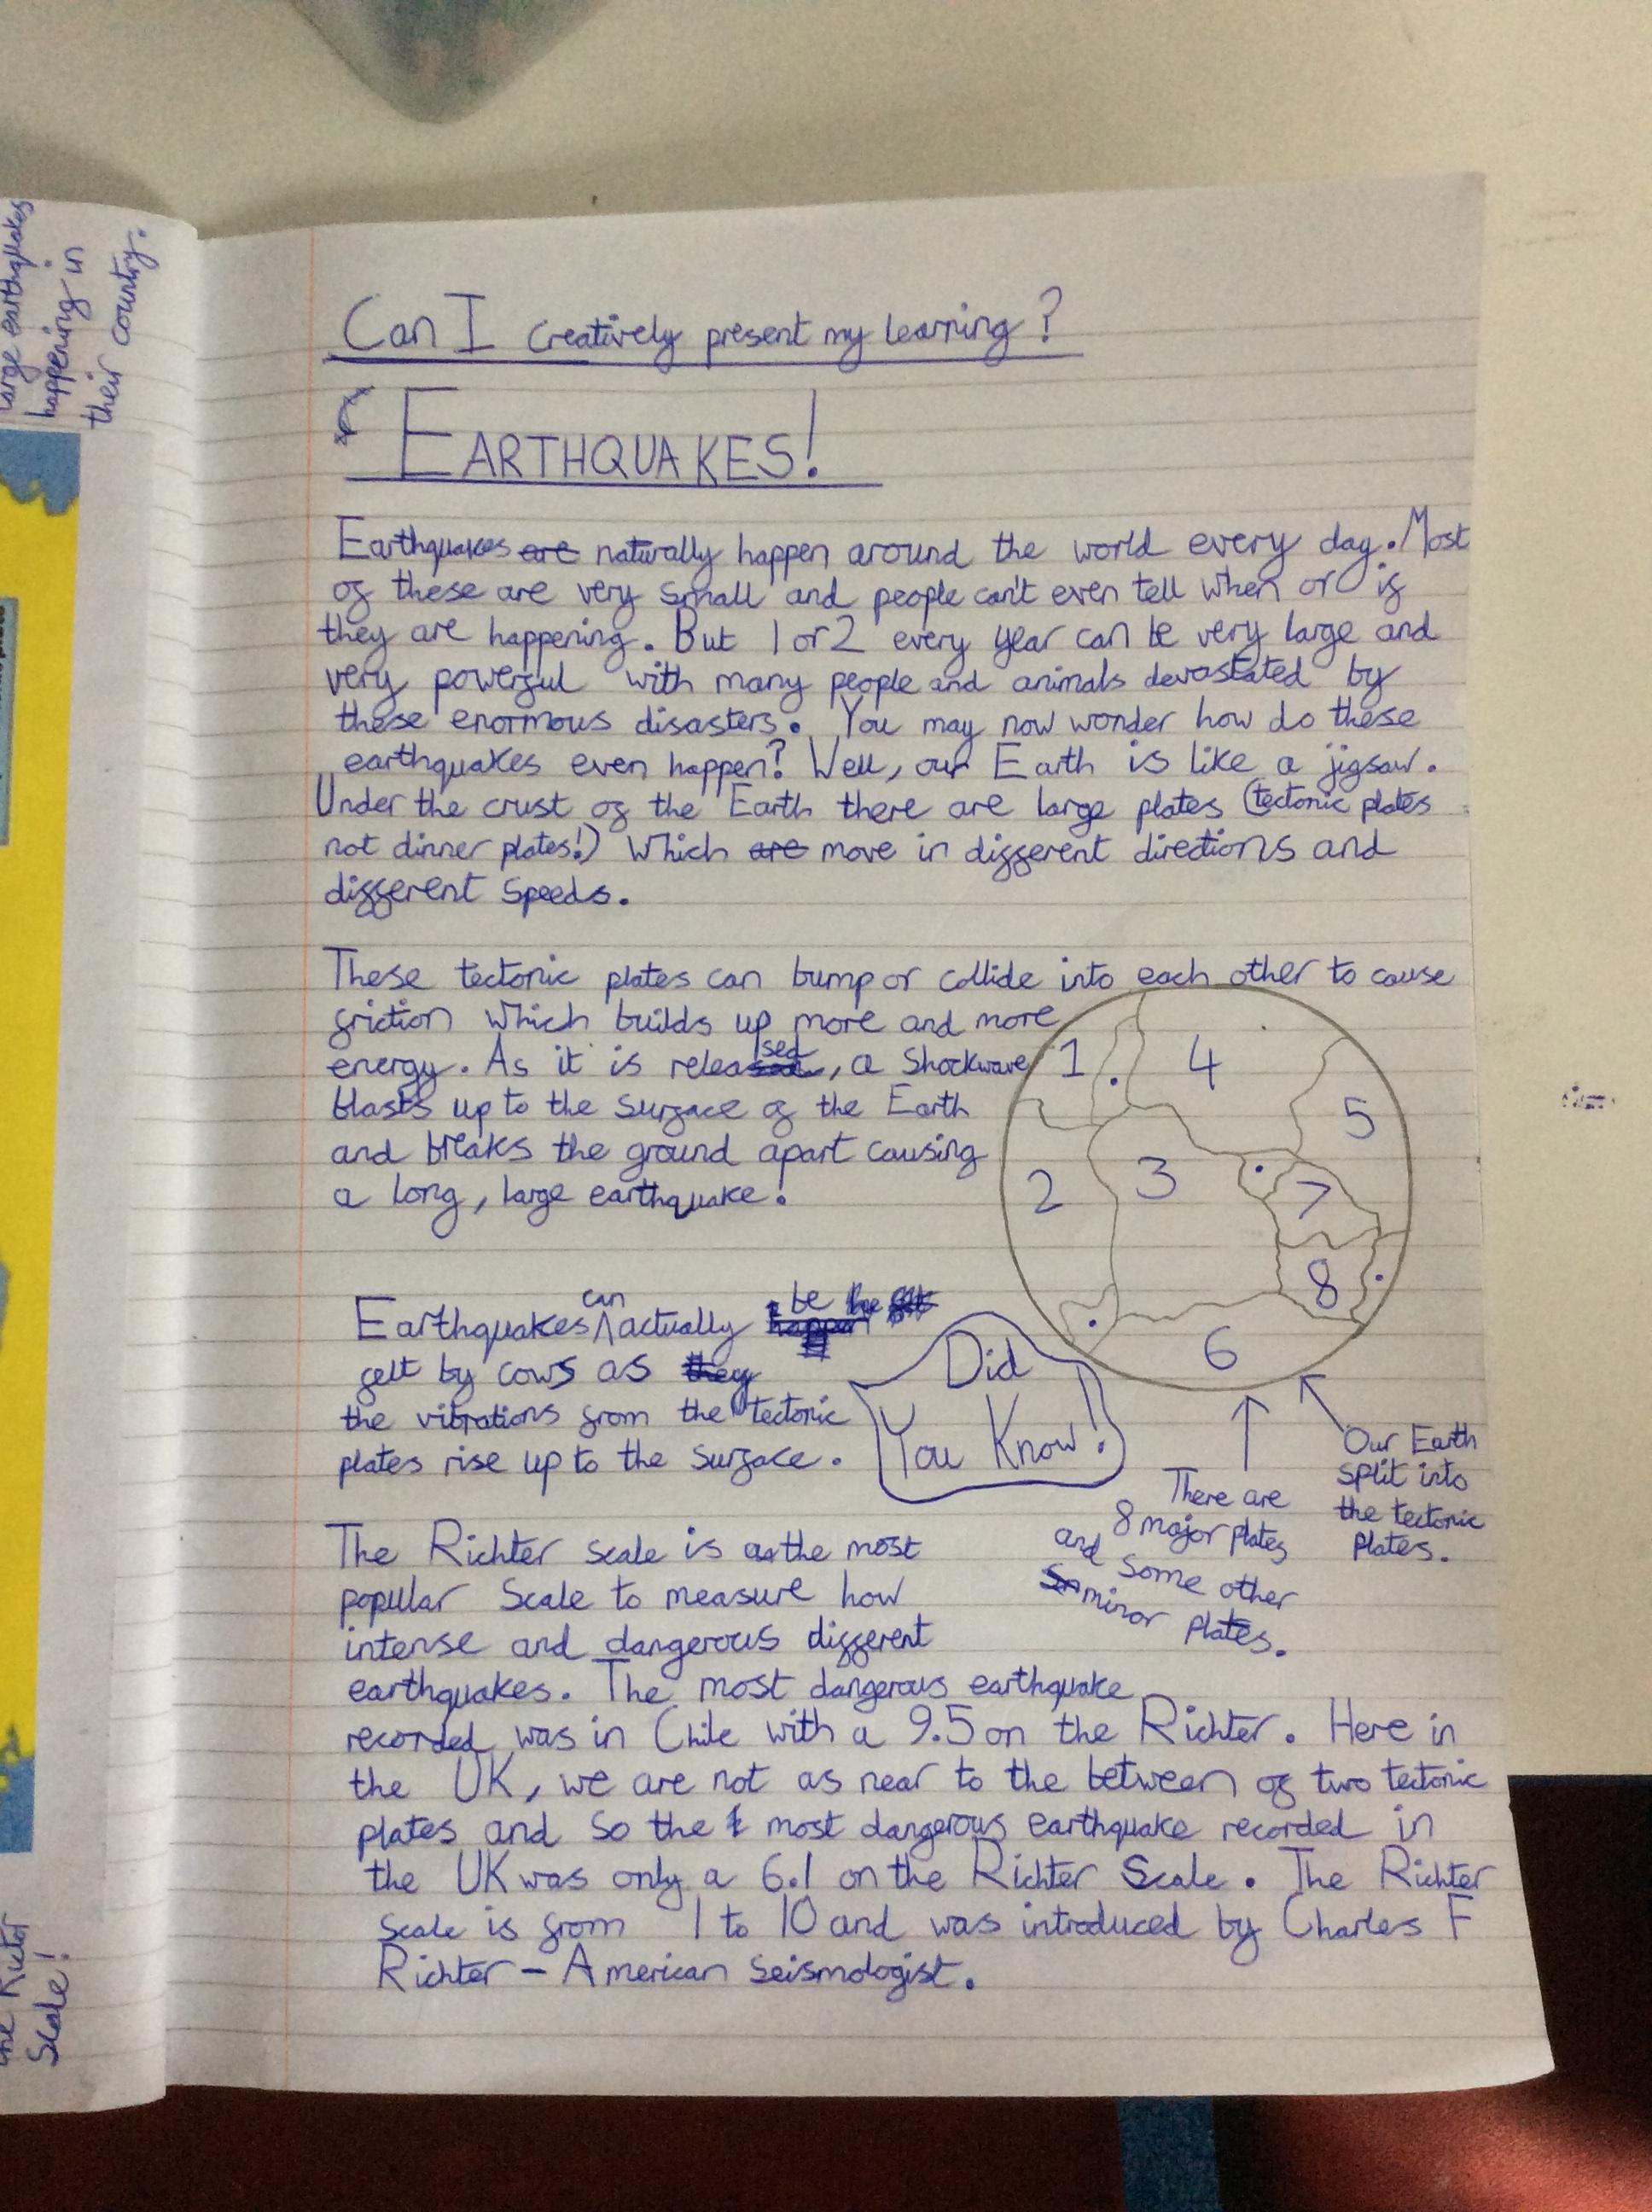 large earthquakes
happening in
their country.
Can I creatively present my learning?
EARTHQUAKES!
Earthquakes are naturally happen around the world every day. Most
of these are very small and people can't even tell when or if
they are happening. But 1 or 2 every year can be very large and
very powerful with many people and animals devastated by
these enormous disasters. You may now wonder how do these
earthquakes even happen? Well, our Earth is like a jigsaw.
Under the crust of the Earth there are large plates (tectonic plates
not dinner plates!) which are move in different directions and
different speeds.
These tectonic plates can bump or collide into each other to cause
friction which builds up more and more
energy. As it is released, a shockwave
blasts up to the surface of the Earth
and breaks the ground apart causing
a long, large earthquake!
1
4
5
2
3
7
8
6
Earthquakes can actually happen be the
felt by cows as they
the vibrations from the tectonic
plates rise up to the surface.
Did
You Know!
There are
8 major plates
and some other
minor plates.
Our Earth
split into
the tectonic
plates.
The Richter scale is as the most
popular scale to measure how
intense and dangerous different
earthquakes. The most dangerous earthquake
recorded was in Chile with a 9.5 on the Richter. Here in
the UK, we are not as near to the between of two tectonic
plates and so the most dangerous earthquake recorded in
the UK was only a 6.1 on the Richter Scale. The Richter
scale is from 1 to 10 and was introduced by Charles F
Richter - American seismologist.
the Rictor
Scale!